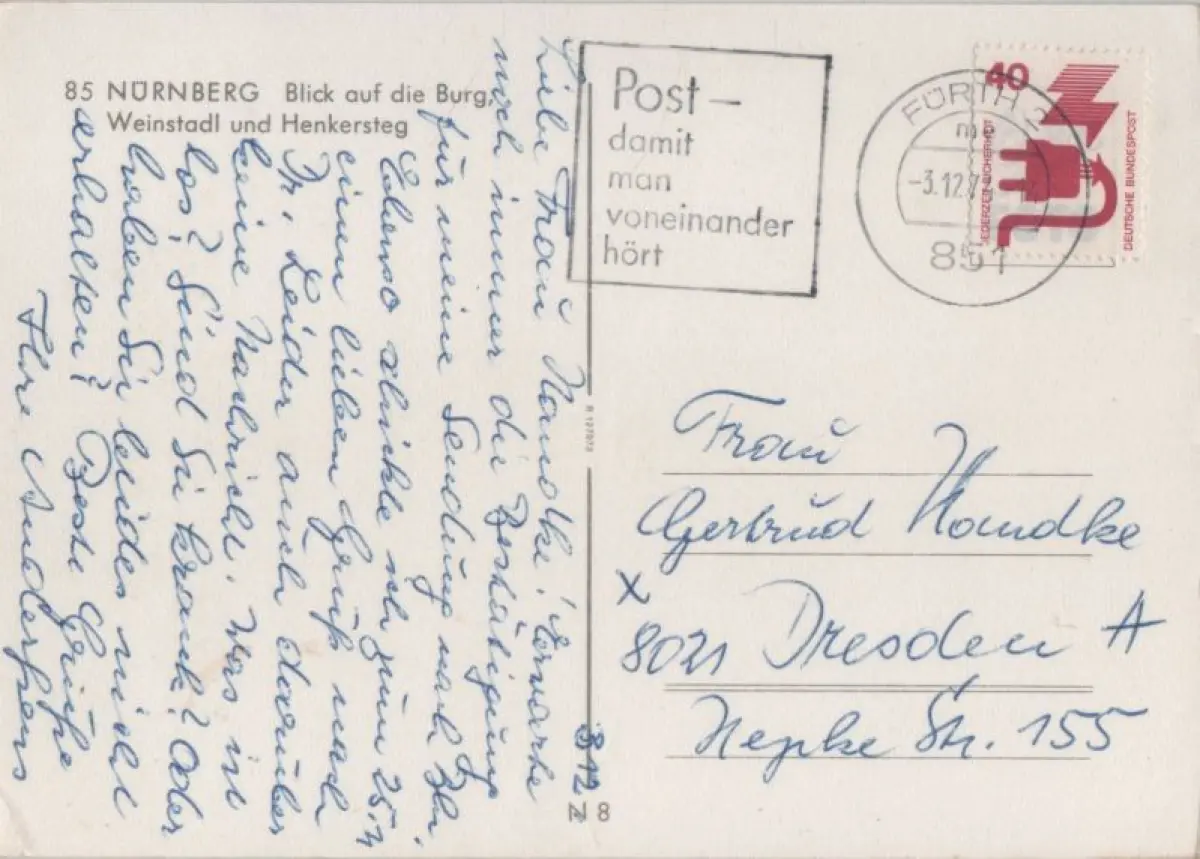 85 NÜRNBERG Blick auf die Burg,
Weinstadl und Henkersteg
Post –
damit
man
voneinander
hört
FÜRTH 2
mc
-3.12.7
851
40
JEDERZEIT SICHERHEIT
DEUTSCHE BUNDESPOST
3.12.
Liebe Frau Handke! Erwarte
noch immer die Bestätigung
für meine Sendung nach Bln.
Ebenso schickte ich zum 25.11
einen lieben Gruß nach
Dr. Leider auch darüber
keine Nachricht. Was ist
los? Sind Sie krank? Oder
haben Sie beides nicht
erhalten? Beste Grüße
Ihre
Frau
Gertrud Handke
x
8021 Dresden A
Hepke Str. 155
N 8